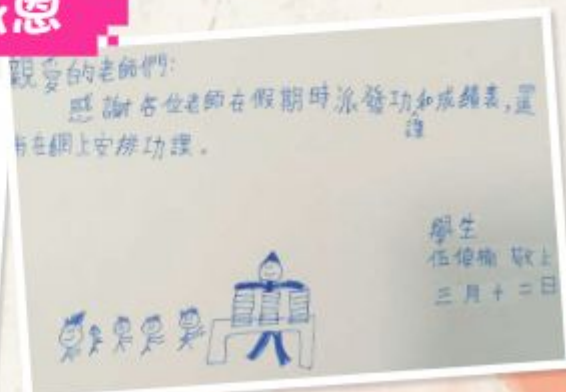 恩
親愛的老師們:
感謝各位老師在假期時派發功和成績表,還
課
有在網上安排功課。
學生
敬上
三月十二日